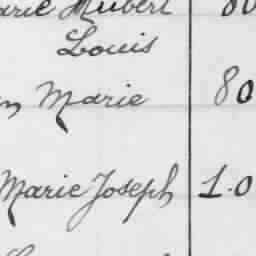 Marie Hubert 80
Louis
Marie 80
Marie Joseph 1.0